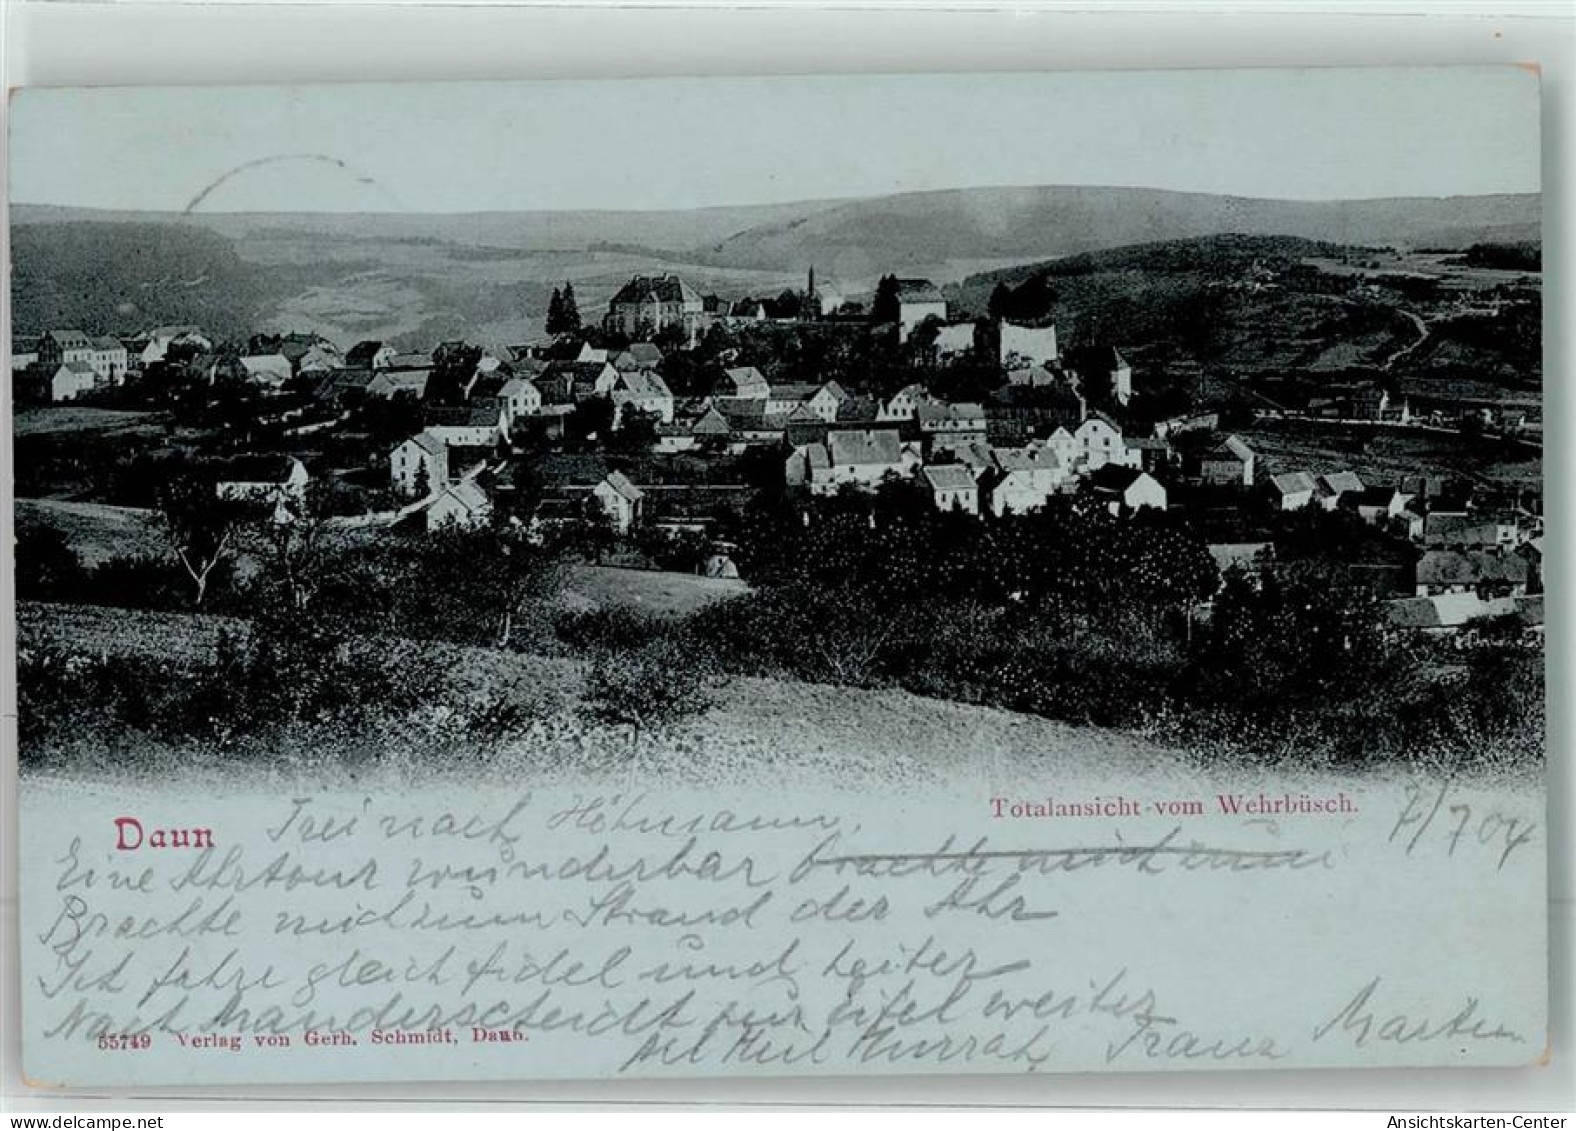 Totalansicht vom Wehrbüsch.
7/7 04
Daun
Frei nach Höhmann.
Eine Ahrtour wunderbar brachte mich zum
Brachte mich zum Strand der Ahr
Ich fahre gleich fidel und heiter
Nach Manderscheidt zur Eifel weiter
Heil Hurrah Franz Martin
55749 Verlag von Gerh. Schmidt, Daun.
delcampe.net
Ansichtskarten-Center